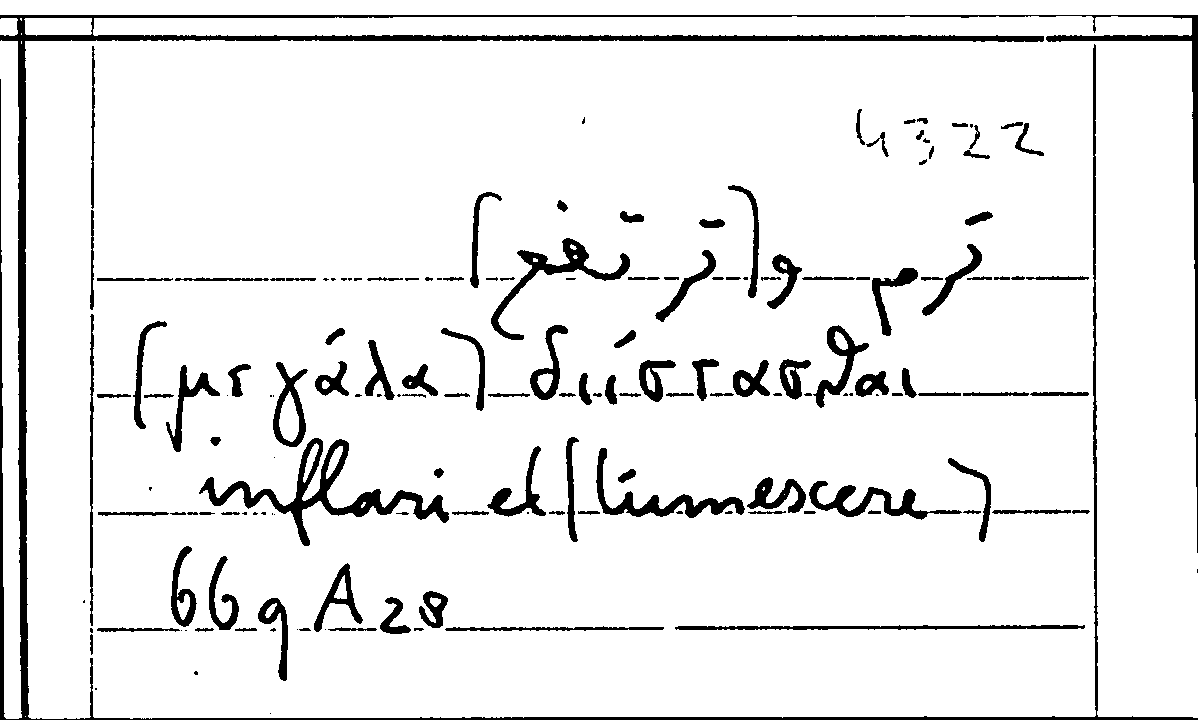 4322
ترم و(ترتفع)
(μεγάλα) διίστασθαι
inflari et (tumescere)
669 A 28